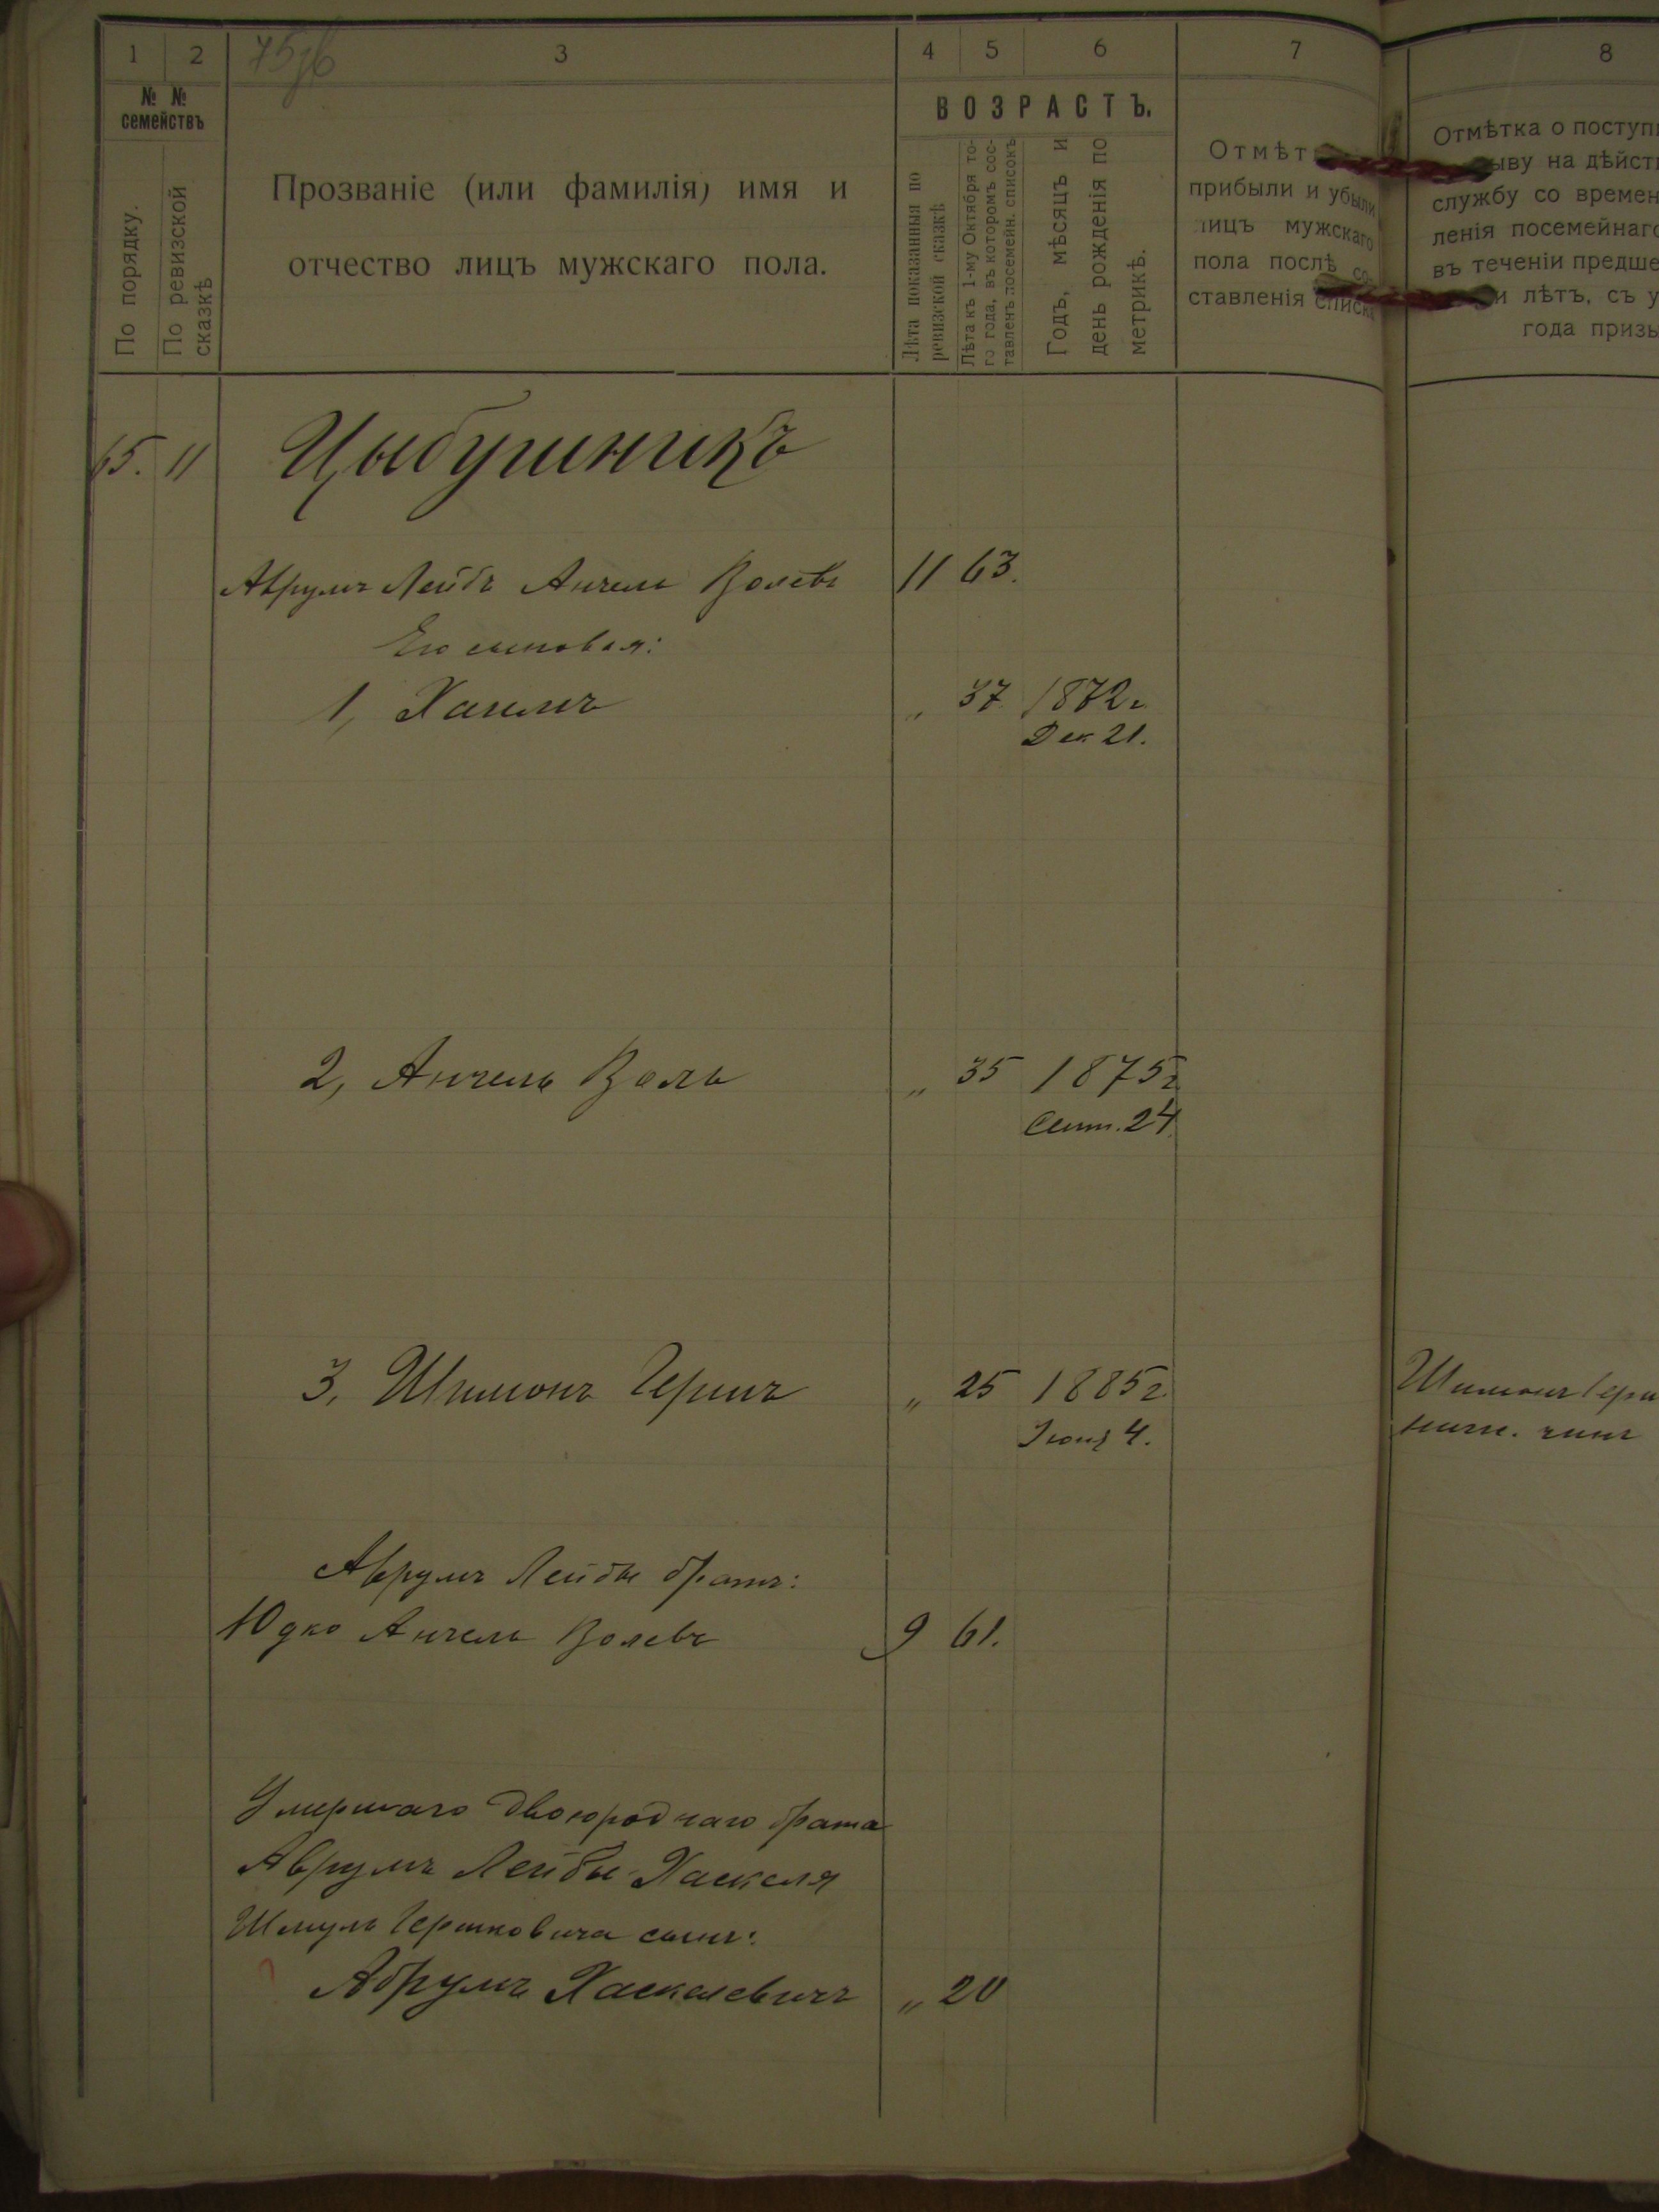 1 2 75 об 3 4 5 6 7 8
№ № семействъ
По порядку.
По ревизской сказкѣ
Прозваніе (или фамилія) имя и
отчество лицъ мужскаго пола.
ВОЗРАСТЪ.
Лѣта показанныя по
ревизской сказкѣ
Лѣта къ 1-му Октября то-
го года, въ которомъ сос-
тавленъ посемейн. списокъ
Годъ, мѣсяцъ и
день рожденія по
метрикѣ.
Отмѣт
прибыли и убыли
лицъ мужскаго
пола послѣ со-
ставленія списка
Отмѣтка о поступ
ыву на дѣйст
службу со времен
ленія посемейнаго
въ теченіи предше
и лѣтъ, съ у
года призы
65. 11 Цыбушникъ
Аврумъ Лейбъ Анчель Волевъ 11 63.
Его сыновья:
1, Хаимъ " 37 1872 г.
Дек. 21.
2, Анчель Воль " 35 1875 г
Сент. 24.
3, Шимонъ Гершъ " 25 1885 г.
Іюня 4.
Шимонъ Герш
нижн. чинъ
Аврумъ Лейбы братъ:
Юдко Анчель Волевъ 9 61.
Умершаго двоюроднаго брата
Аврумъ Лейбы-Хаскеля
Шмуль Гершковича сынъ:
Абрумъ Хаскелевичъ " 20